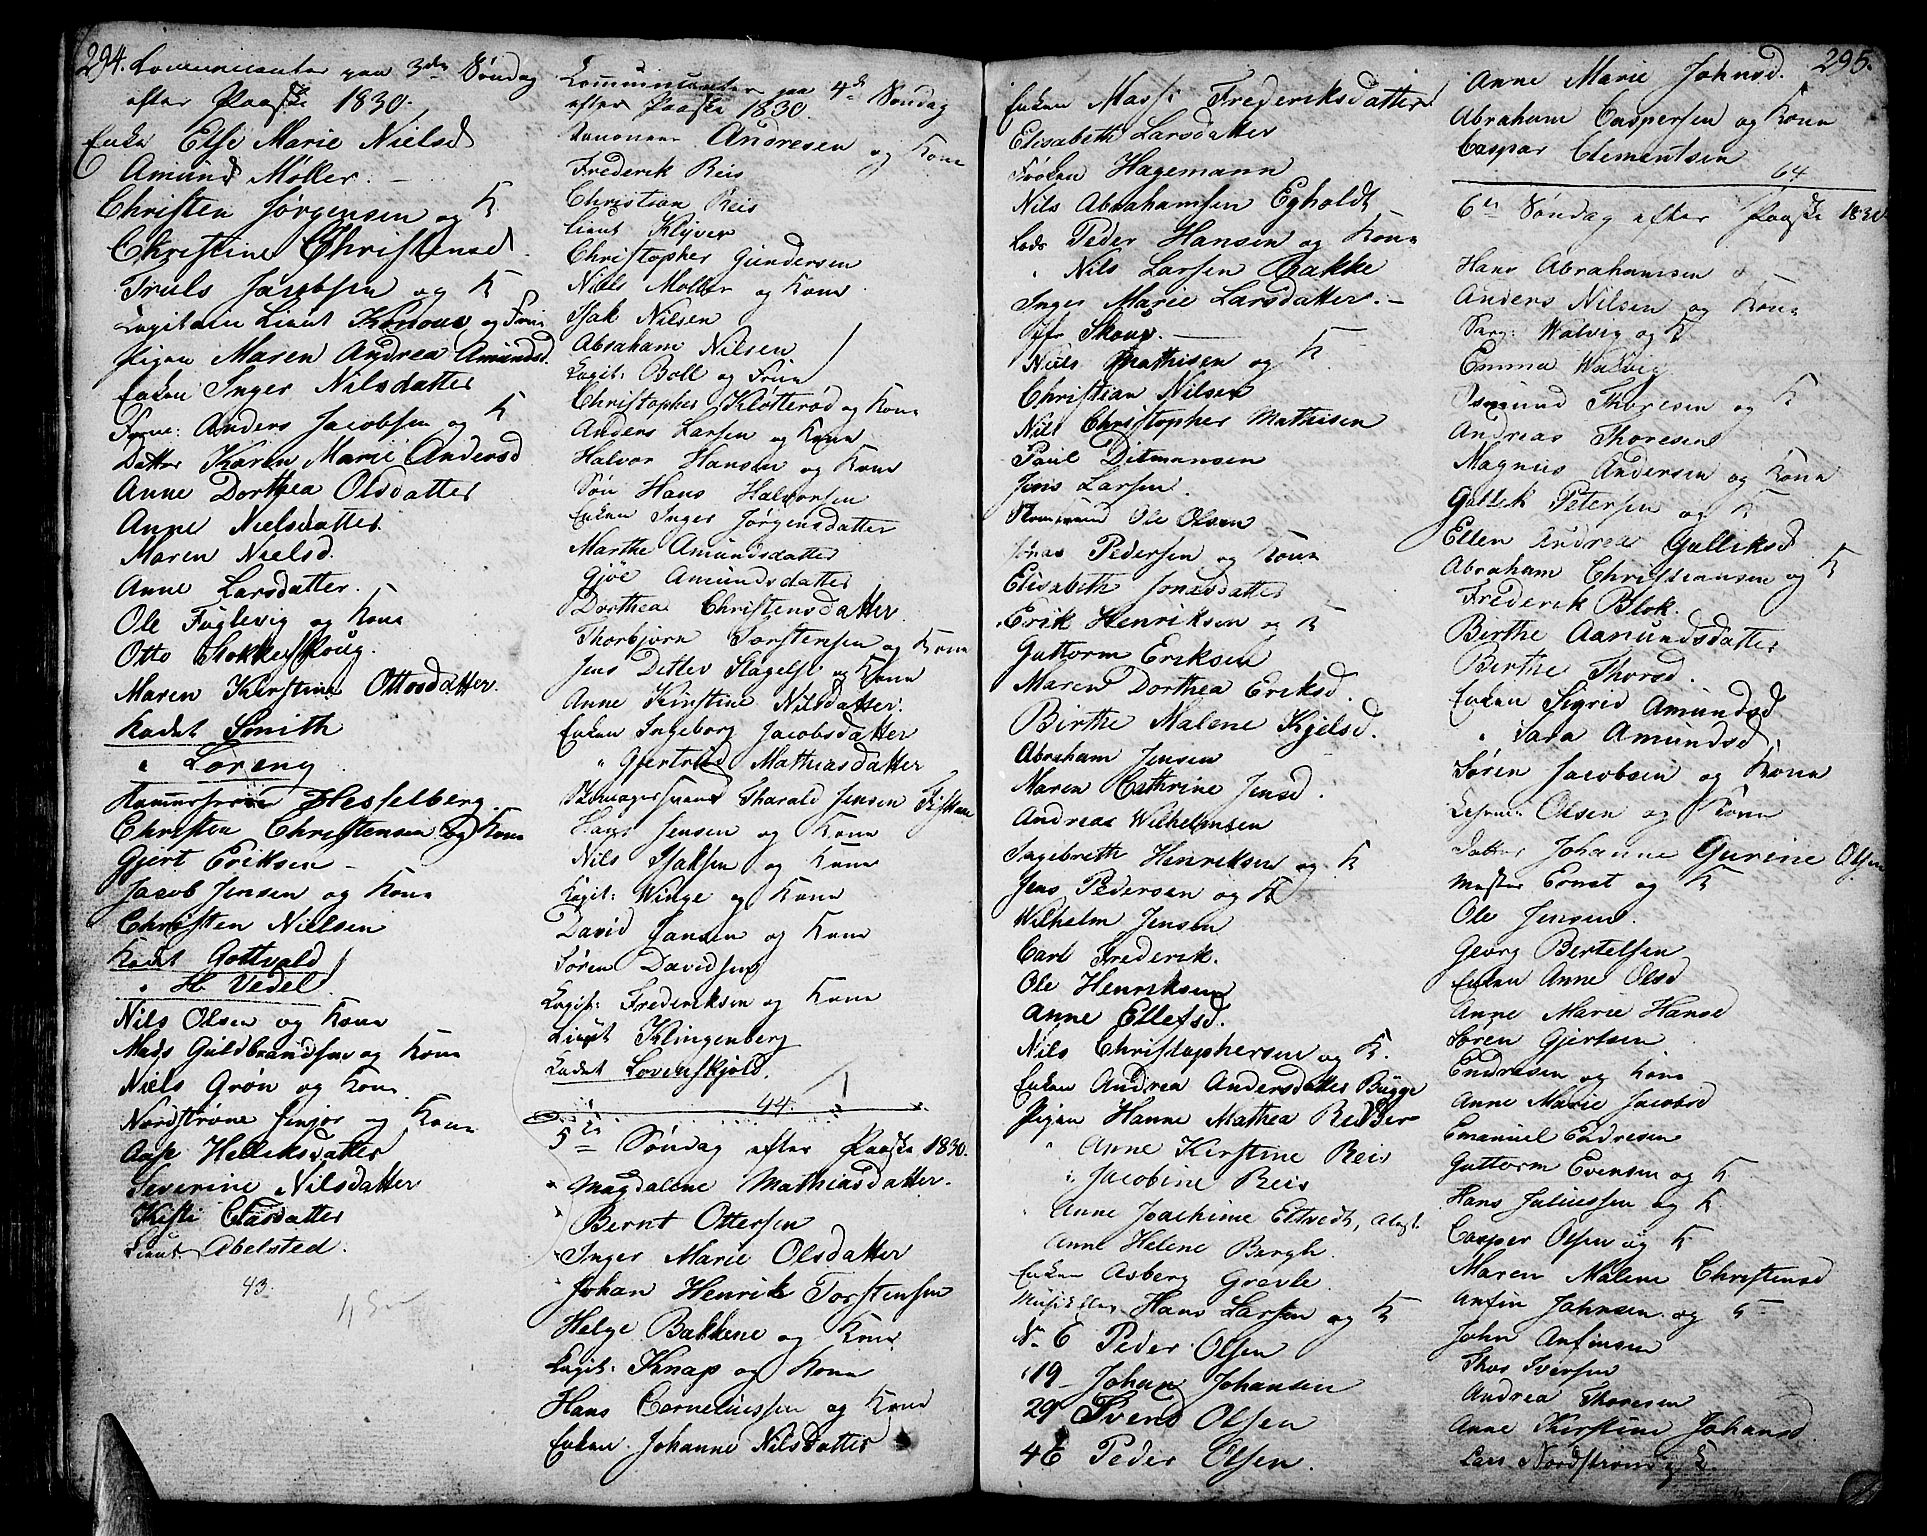 294.
Communicanter paa 3die Søndag
efter Paaske 1830.
Enke Else Marie Nielsd
Amund Møller. —
Christen Jørgensen og K
Christine Christensd.
Truls Jacobsen og K
Capitain Lieut Konow og Frue
Pigen Maren Andrea Amundsd.
Enken Inger Nilsdatter
Anders Jacobsen og K
Datter Karen Marie Andersd
Anne Dorthea Olsdatter
Anne Nielsdatter.
Maren Nielsd.
Anne Larsdatter.
Ole Fuglevig og Kone
Otto Stokkerskoug.
Maren Kirstine Ottosdatter.
Kadet Smith
" Loreng
Hesselberg.
Christen Christensen og Kone
Gjert Eriksen —
Jacob Jensen og Kone
Christen Nielsen
Kadet Gottvald
" H Vedel
Nils Olsen og Kone
Mads Guldbrandsen og Kone
Niels Grøn og Kone
Nordstrøne senjor og Kone
Aase Helleksdatter
Severine Nilsdatter
Kisti Clasdatter
Lieut. Abelsted.
43.
Communicanter paa 4de Søndag
efter Paaske 1830.
Andresen og Kone
Frederik Reis
Christian Reis
Lieut Klÿver
Christopher Gundersen
Niels Møller og Kone
Isak Nilsen
Abraham Nilsen
Capit: Boll og Frue
Christopher Klosterød og Kone
Anders Larsen og Kone
Halvor Hansen og Kone
Søn Hans Halvorsen
Enken Inger Jørgensdatter
Marthe Amundsdatter
Gjøe Amundsdatter
Dorthea Christensdatter.
Thorbjørn Torstensen og Kone
Jens Detlev Slagelse og Kone
Anne Kirstine Nilsdatter.
Enken Ingeborg Jacobsdatter
" Gjertrud Mathiasdatter
Skomagersvend Tharald Jensen
Hans Jensen og Kone
Nils Isaksen og Kone
Capit: Winge og Kone
David Jansen og Kone
Søren Davidsen
Capit: Frederiksen og Kone
Lieut Klingenberg
Kadet Lovenskjold.
44.
5te Søndag efter Paaske 1830.
Magdalene Mathiasdatter.
Bernt Ottersen
Inger Marie Olsdatter
Johan Henrik Torstensen
Helge Bakkene og Kone
Capit: Knap og Kone
Hans Corneliussen og Kone
Enken Johanne Nilsdatter
295.
Enken Massi Frederiksdatter
Elisabeth Larsdatter
Frøken Hagemann
Nils Abrahamsen Egholdt
Lods Peder Hansen og Kone
" Nils Larsen Bakke
Inger Marie Larsdatter. —
Jfr Skoug. —
Niels Mathisen og K
Christian Nilsen
Nils Christopher Mathisen
Paul Ditmansen
Jens Larsen.
Ole Olsen
Jonas Pedersen og Kone
Elisabeth Jonasdatter
Erik Henriksen og K
Guttorm Eriksen
Maren Dorthea Eriksd.
Birthe Malene Kjelsd.
Abraham Jensen
Maren Cathrine Jensd.
Andreas Wilhelmsen
Ingebreth Henriksen og K
Jens Pedersen og K
Wilhelm Jensen
Carl Frederik.
Ole Henriksen
Anne Ellefsd.
Nils Christophersen og K.
Enken Andrea Andersdatter Bugge
Pigen Hanne Mathea Redder
" Anne Kirstine Reis
" Jacobine Reis
" Anne Joachime Eltvedt,
Anne Helene Bergh.
Enken Asberg Grevle
Hans Larsen og K
No 6 Peder Olsen
19 Johan Johansen
29 Svend Olsen
46 Peder Olsen.
Anne Marie Johnsd.
Abraham Caspersen og Kone
Caspar Clementsen
64
6te Søndag efter Paaske 1830
Hans Abrahamsen
Anders Nilsen og Kone
Serg: Walvig og K
Emma Walvig
Osmund Thoresen og K
Andreas Thoresen
Magnus Andersen og Kone
Gullik Petersen og K
Ellen Andrea Gulliksd
Abraham Christiansen og K
Frederik Blok.
Birthe Aamundsdatter
Berthe Thorsd.
Enken Sigrid Amundsd
" Sara Amundsd
Søren Jacobsen og Kone
Olsen og Kone
Datter Johanne Gurine Olsen
Mester Ernst og K
Ole Jensen.
Georg Bertelsen
Enken Anne Olsd
Anne Marie Hansd
Søren Gjertsen
Endresen og Kone
Anne Marie Jacobsd
Emanuel Endresen
Guttorm Evensen og K
Hans Juliussen og K
Casper Olsen og K
Maren Malene Christensd
Anfin Johnsen og K
John Anfinsen
Thor Iversen
Andrea Thoresen
Anne Kirstine Johansd.
Lars Nordstrøm og K.